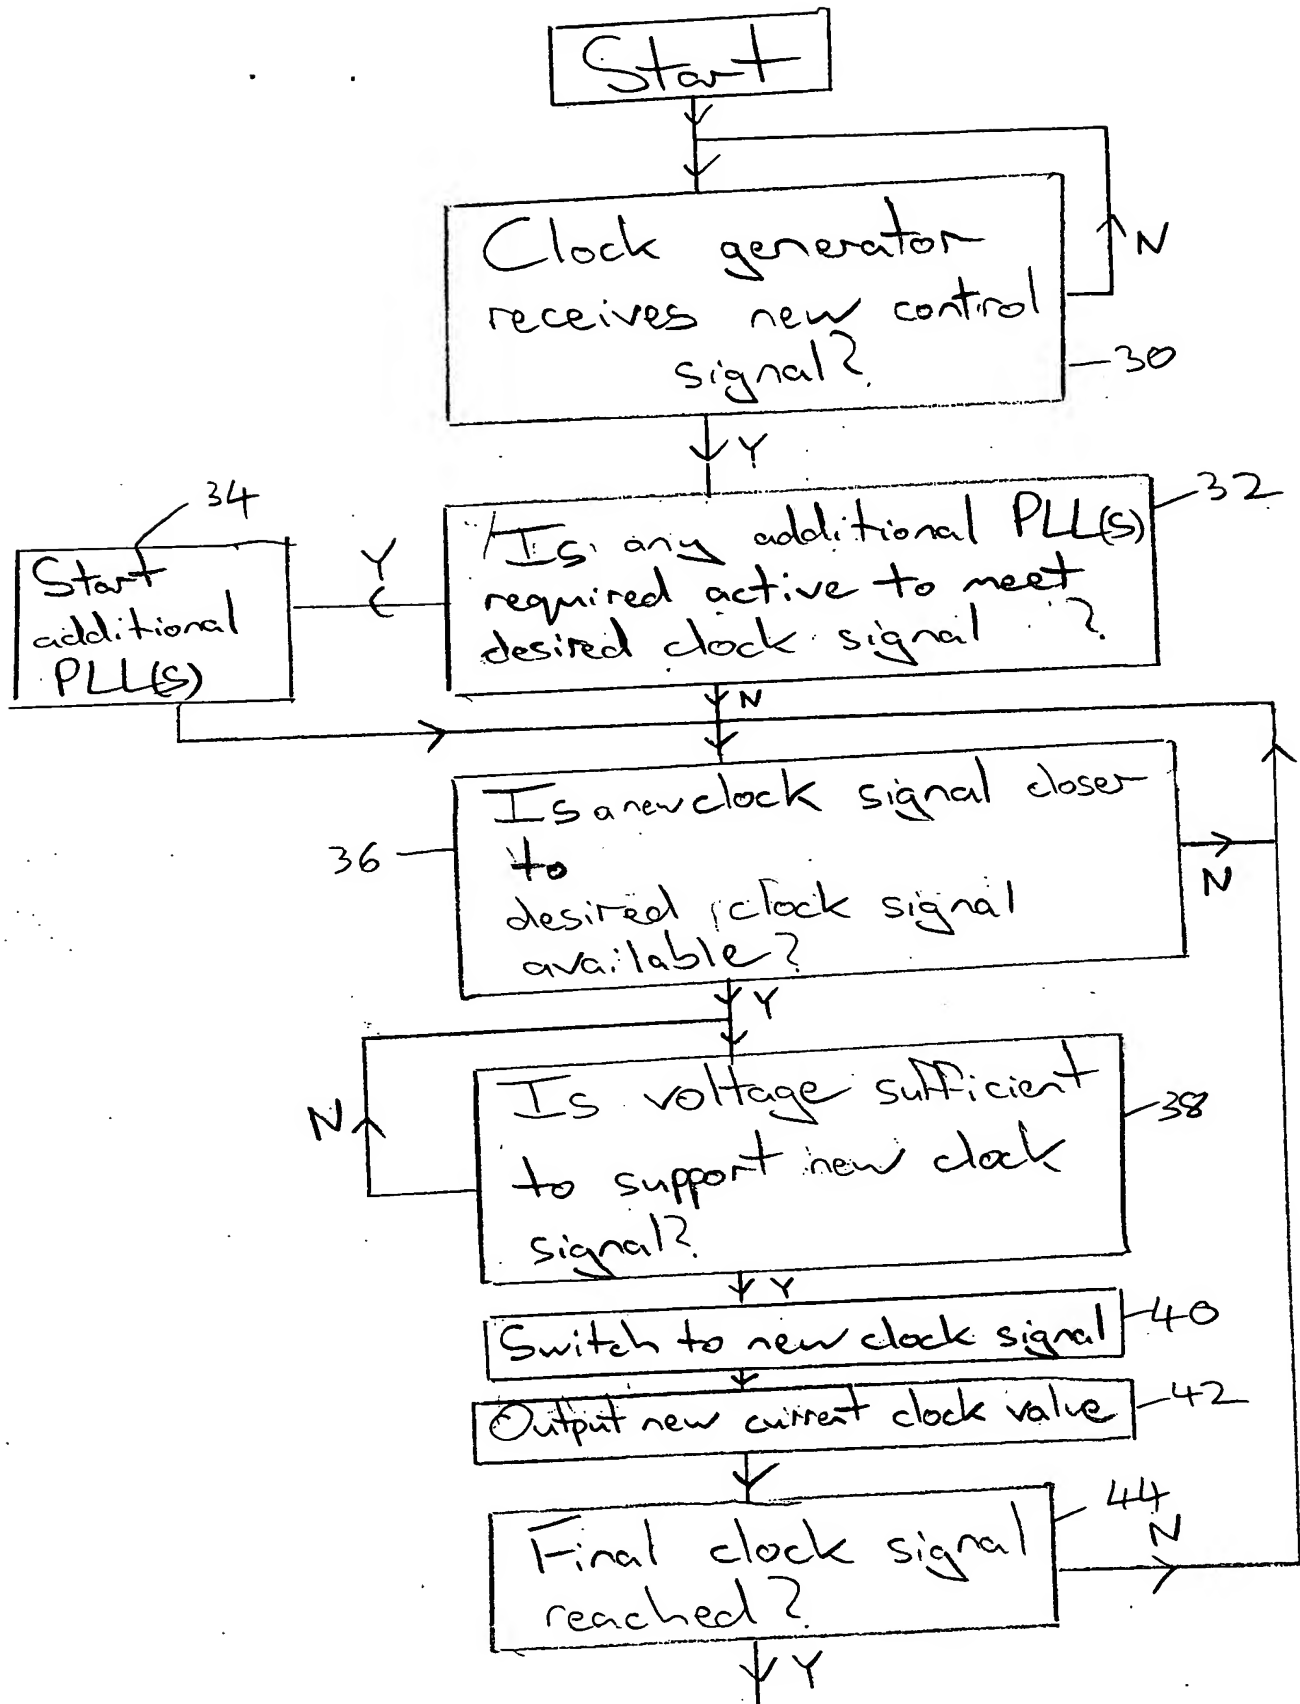 Start
Clock generator
receives new control
signal?
N
30
Y
32
Is any additional PLL(s)
required active to meet
desired clock signal ?
34
Y
Start
additional
PLL(s)
N
Is a new clock signal closer
to
desired clock signal
available?
36
N
Y
Is voltage sufficient
to support new clock
signal?
38
N
Y
Switch to new clock signal
40
Output new current clock value
42
Final clock signal
reached?
44
N
Y